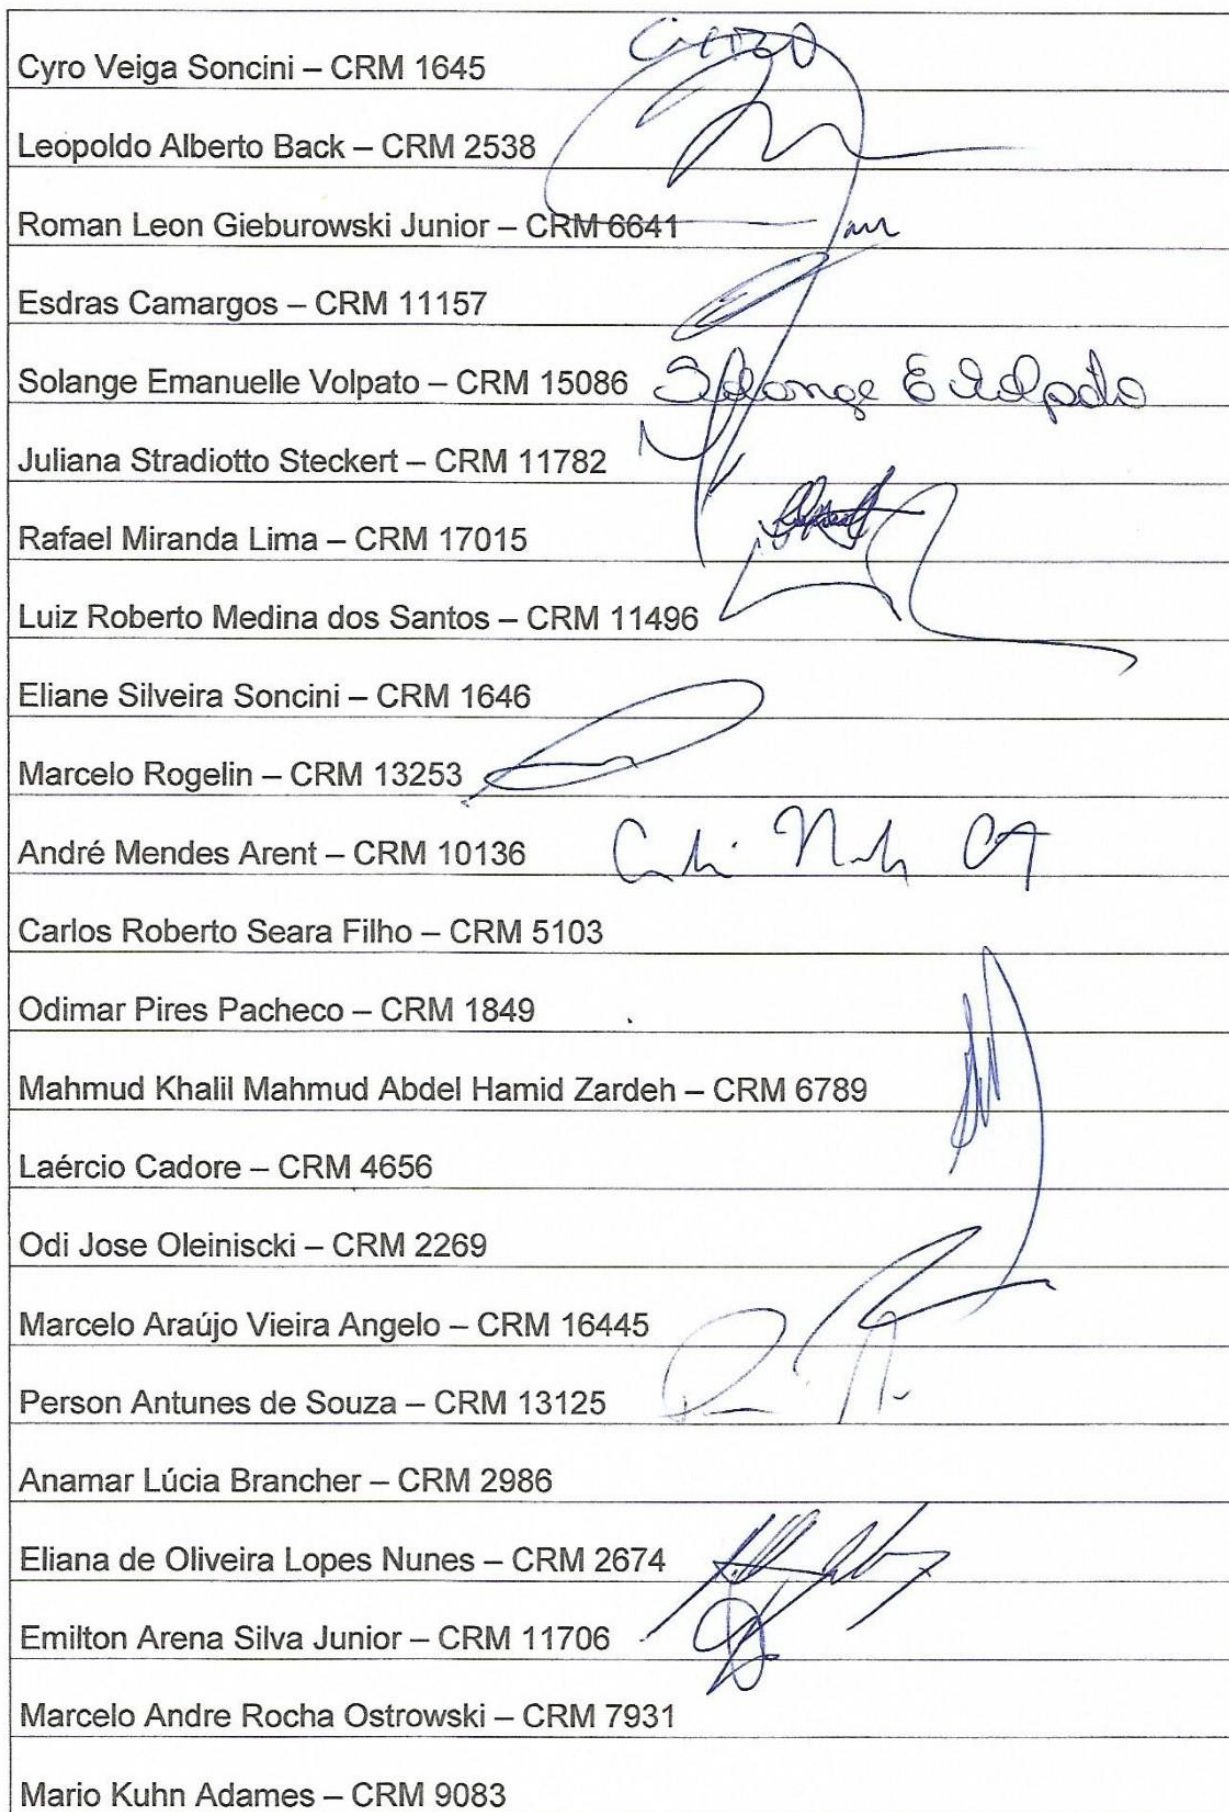 Cyro Veiga Soncini – CRM 1645
Leopoldo Alberto Back – CRM 2538
Roman Leon Gieburowski Junior – CRM 6641
Esdras Camargos – CRM 11157
Solange Emanuelle Volpato – CRM 15086 Solange E Volpato
Juliana Stradiotto Steckert – CRM 11782
Rafael Miranda Lima – CRM 17015
Luiz Roberto Medina dos Santos – CRM 11496
Eliane Silveira Soncini – CRM 1646
Marcelo Rogelin – CRM 13253
André Mendes Arent – CRM 10136
Carlos Roberto Seara Filho – CRM 5103
Odimar Pires Pacheco – CRM 1849
Mahmud Khalil Mahmud Abdel Hamid Zardeh – CRM 6789
Laércio Cadore – CRM 4656
Odi Jose Oleiniscki – CRM 2269
Marcelo Araújo Vieira Angelo – CRM 16445
Person Antunes de Souza – CRM 13125
Anamar Lúcia Brancher – CRM 2986
Eliana de Oliveira Lopes Nunes – CRM 2674
Emilton Arena Silva Junior – CRM 11706
Marcelo Andre Rocha Ostrowski – CRM 7931
Mario Kuhn Adames – CRM 9083